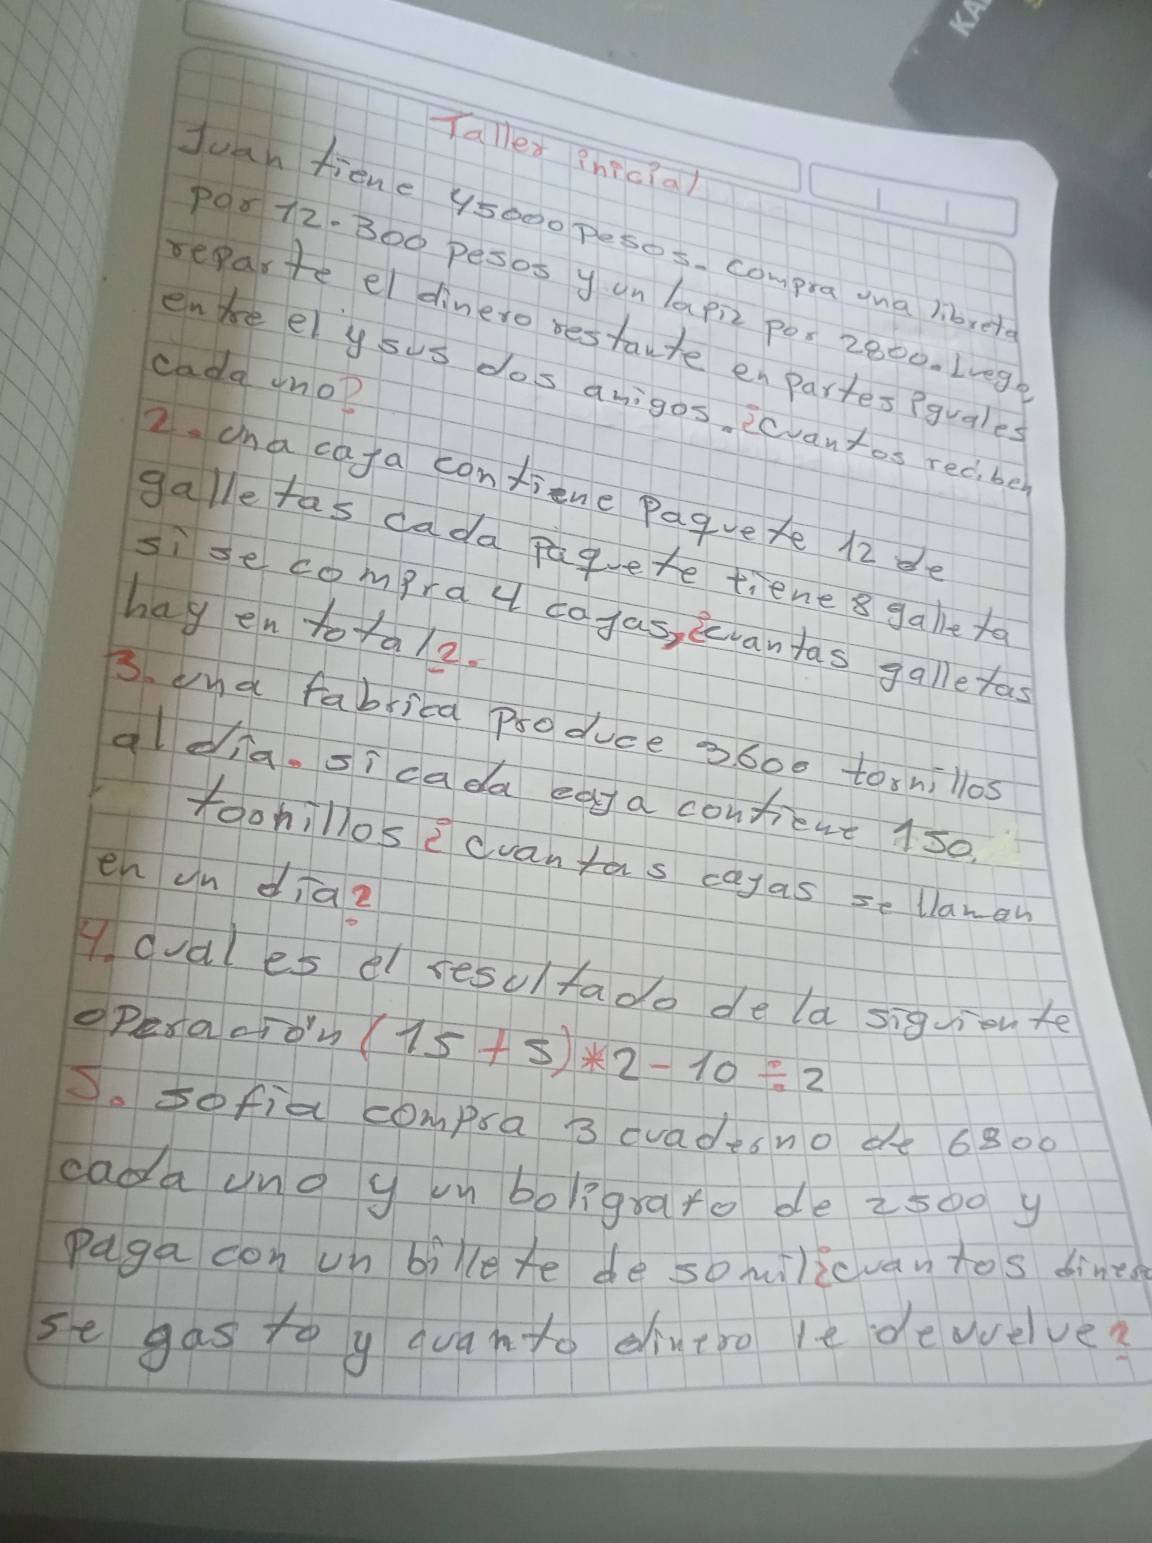 KA
Taller inicial
Juan tiene 45000 pesos. compra una libreta
por 12.300 pesos y un lapiz por 2800. Luego
reparte el dinero restante en partes iguales
entre el y sus dos amigos. ¿cuantos reciben
cada uno?
2. una caja contiene Paquete 12 de
galletas cada paquete tiene 8 galleta
si se compra 4 cajas, ¿cuantas galletas
hay en total?.
3. una fabrica produce 3600 tornillos
al dia. si cada caja contiene 150.
toonillos ¿cuantas cajas se llaman
en un dia?
4. cual es el resultado de la siguiente
operación (15 + 5) * 2 - 10 ÷ 2
5. sofia compra 3 cuaderno de 6800
cada uno y un boligrafo de 2500 y
paga con un billete de 50 mil ¿cuantos dinero
se gasto y cuanto dinero le devuelve?